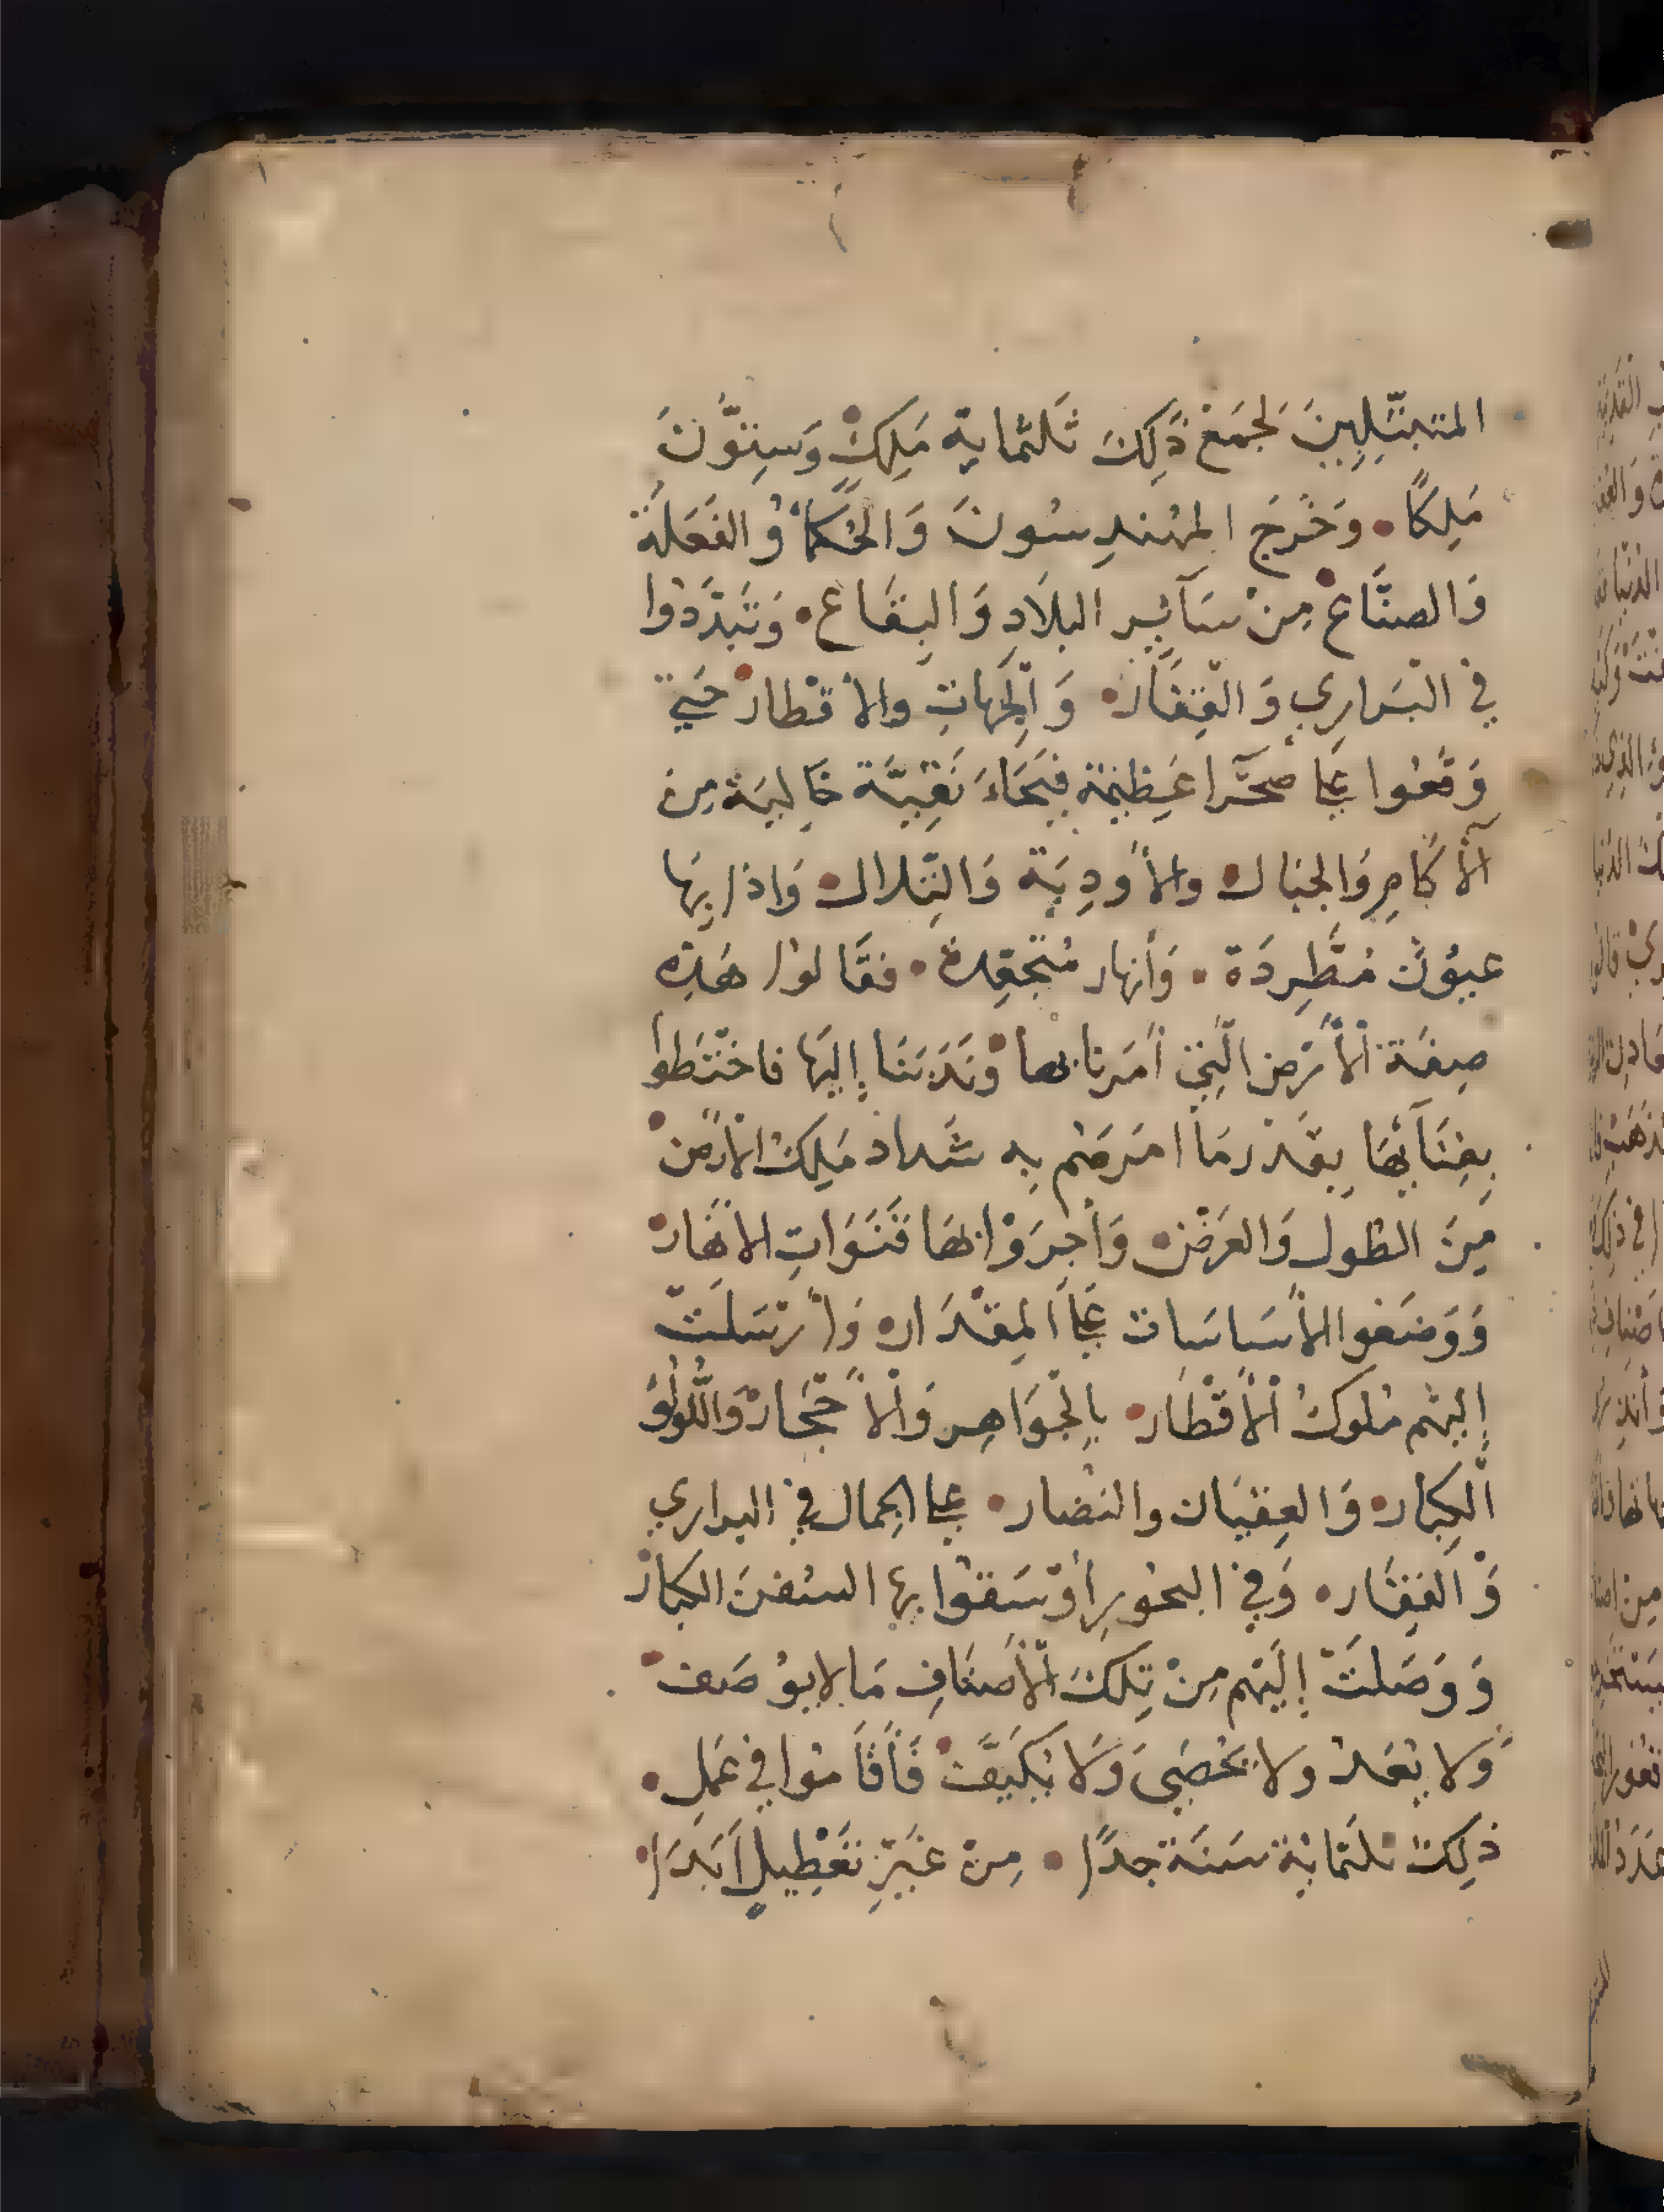 المتبتلين لجمع ذَلِكَ ثَلثماية مَلِكٍ وَسِتّونَ
مَلِكًا • وَخَرَجَ المهندِسُونَ وَالحُكمَاُ وُالفَعَلَة
وَالصنَّاع مِنْ سَآئِر البلاَدِ وَالبِقَاع • وَتَبَدَّدُوا
في البَرارِي وَالقِفَار • وَالجِهاتِ والأقْطار حَتي
وَقَعُوا عَلى صَحرَآ عَظِيمَة فَيحَاءَ نَقِيَّة خَالِيَة مِن
الآكَامِ وَالجبَال • والأَودِيَة وَالتِّلال • وَاذا بِهَا
عيُونٌ مُطَّرِدَة • وَأنهار • فقَالوُا هَذِه
صِفَة الأَرْضِ الَّتِي أَمَرنَا بهَا وَنَدَبَنَا إِليَها فاخْتَطوُا
بِفِنَآئِهَا بِقَدْرِ مَا امَرَهُم بِه شَداد مَلِكُ الأرْض
مِنَ الطول وَالعَرْض • وَأَجرَوْا بهَا قَنَوَاتِ الأنهَار
وَوَضَعُوا الأَسَاسَات عَلَى المِقْدَار • وَأرْسَلَتْ
إِليْهم مُلوكُ الأَقْطَار • بِالجَوَاهِر وَالأَحْجَار وَاللُّولُؤ
الكِبار • وَالعِقيَان والنضار • على الجمال في البراري
وَالقِفَار • وَفي البحُورِ أوْسَقوُا بها السُفنَ الكبار
وَوَصَلَتْ إلَيْهم مِنْ تِلكَ الأَصْنَافِ مَا لا يوُصَف
وَلا يُعَدُ ولا يُحْصَى وَلا يُكَيَّفُ فَأَقَامُوا في عَمَلِ •
ذَلِكَ ثلثمَايَة سَنَة جدًا • مِنْ غَيْرِ تَعْطِيلٍ أَبَدَا •